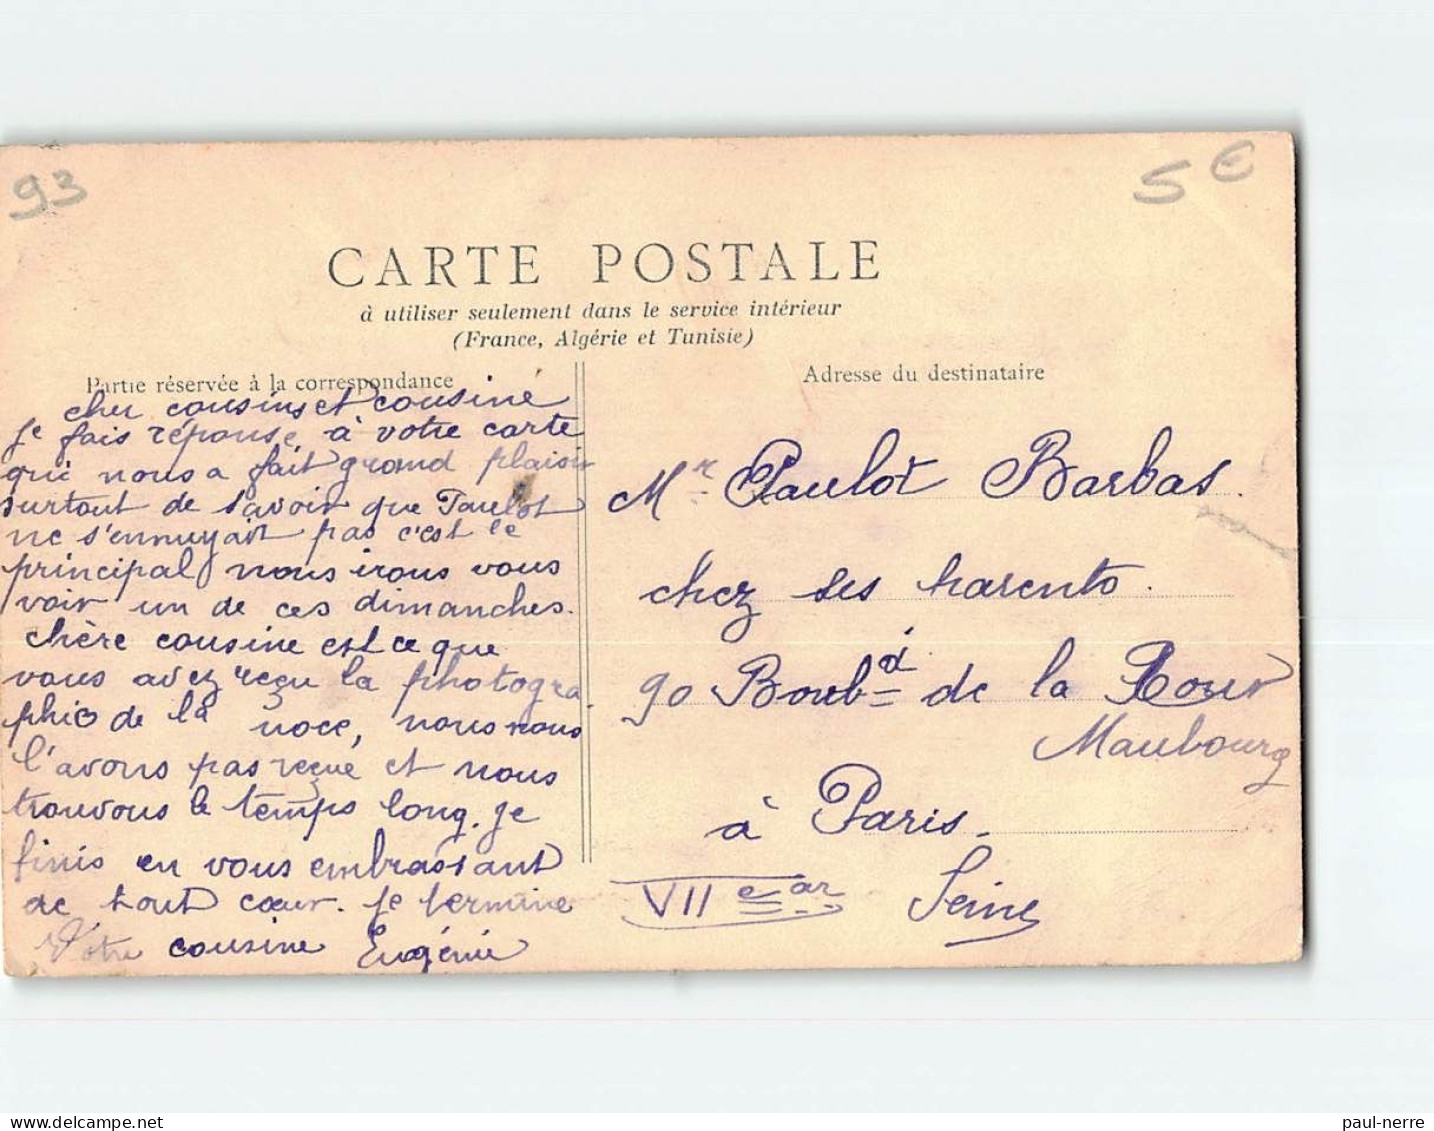 93
5 €
CARTE POSTALE
à utiliser seulement dans le service intérieur
(France, Algérie et Tunisie)
Partie réservée à la correspondance
cher cousins et cousine
je fais réponse à votre carte
qui nous a fait grand plaisir
surtout de savoir que Paulot
ne s'ennuyait pas c'est le
principal nous irons vous
voir un de ces dimanches.
chère cousine est ce que
vous avez reçu la photogra
phie de la noce, nous nous
l'avons pas reçue et nous
trouvons le temps long. je
finis en vous embrassant
de tout cœur. Je termine
Votre cousine Eugénie
Adresse du destinataire
Mr Paulot Barbas
chez ses parents.
90 Bould de la Tour
Maubourg
à Paris.
VII e ar Seine
paul-nerre